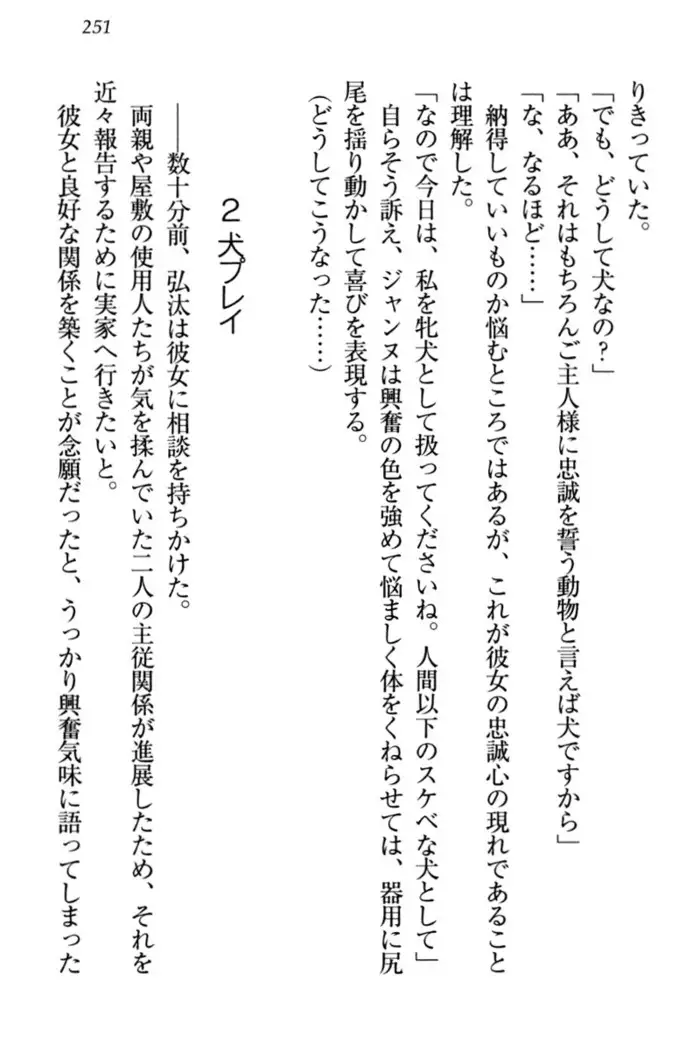 251
りきっていた。
「でも、どうして犬なの？」
「ああ、それはもちろんご主人様に忠誠を誓う動物と言えば犬ですから」
「な、なるほど……」
　納得していいものか悩むところではあるが、これが彼女の忠誠心の現れであること
は理解した。
「なので今日は、私を牝犬として扱ってくださいね。人間以下のスケベな犬として」
　自らそう訴え、ジャンヌは興奮の色を強めて悩ましく体をくねらせては、器用に尻
尾を揺り動かして喜びを表現する。
（どうしてこうなった……）
2 犬プレイ
　――数十分前、弘汰は彼女に相談を持ちかけた。
　両親や屋敷の使用人たちが気を揉んでいた二人の主従関係が進展したため、それを
近々報告するために実家へ行きたいと。
　彼女と良好な関係を築くことが念願だったと、うっかり興奮気味に語ってしまった